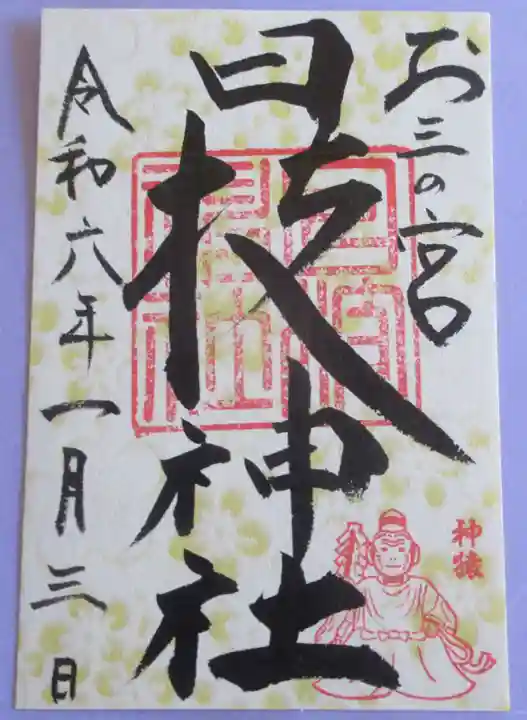 お三の宮
日枝神社
令和六年一月三日
神猿